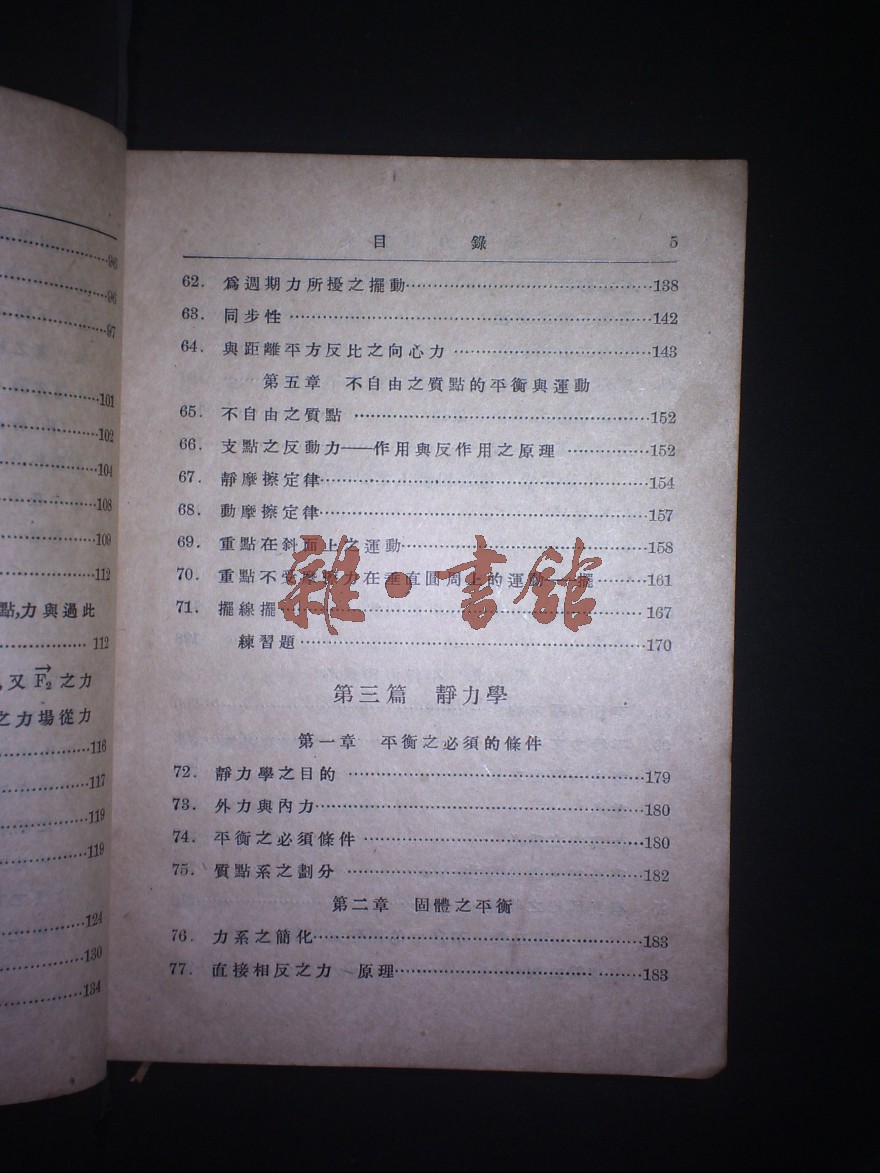 96
96
97
101
102
104
108
109
112
點,力與過此
112
,又 F₂ 之力
之力場從力
116
117
119
119
124
130
134
目 錄 5
62. 爲週期力所擾之擺動……138
63. 同步性……142
64. 與距離平方反比之向心力……143
第五章 不自由之質點的平衡與運動
65. 不自由之質點……152
66. 支點之反動力——作用與反作用之原理……152
67. 靜摩擦定律……154
68. 動摩擦定律……157
69. 重點在斜面上之運動……158
70. 重點不受摩擦力在垂直圓周上的運動——擺……161
71. 擺線擺……167
練習題……170
雜·書館
第三篇 靜力學
第一章 平衡之必須的條件
72. 靜力學之目的……179
73. 外力與內力……180
74. 平衡之必須條件……180
75. 質點系之劃分……182
第二章 固體之平衡
76. 力系之簡化……183
77. 直接相反之力 原理……183